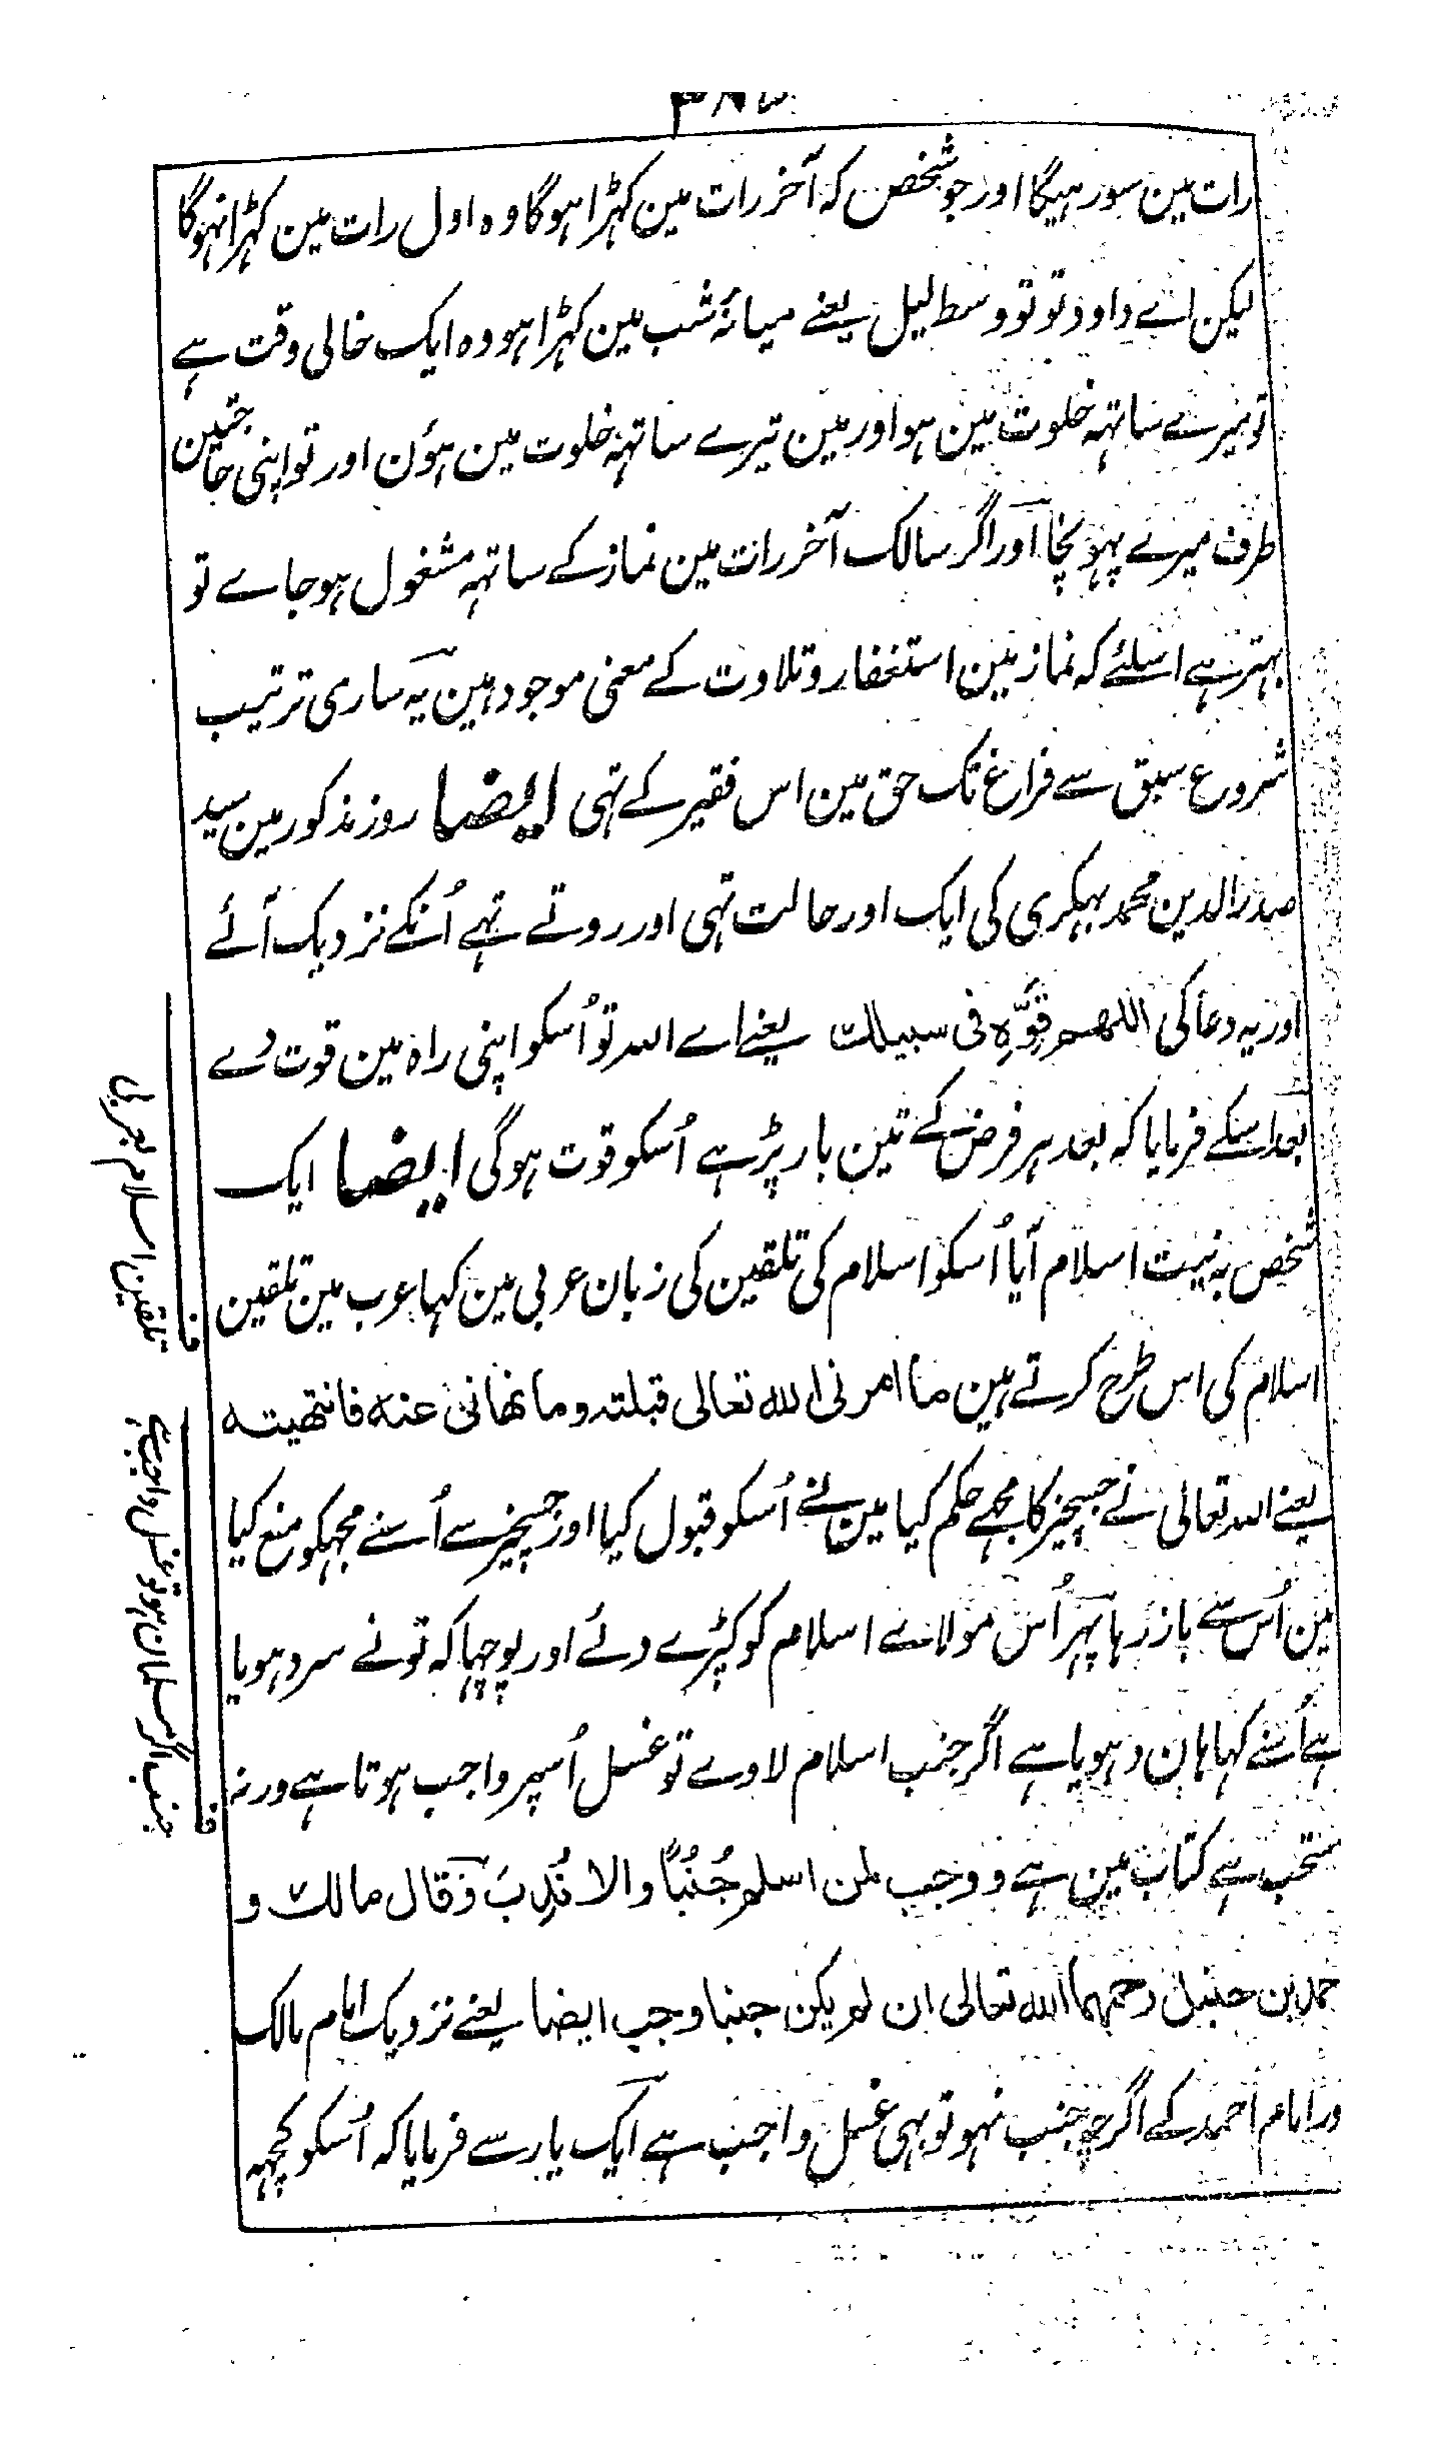 رات مین سورہیگا اور جو شخص کہ آخر رات مین کہڑا ہوگا وہ اول رات مین کہڑا نہوگا
لیکن اے داود تو تو وسط لیل یعنے میانۂ شب مین کہڑا ہو وہ ایک خالی وقت ہے
تو میرے ساتہہ خلوت مین ہو اور مین تیرے ساتہہ خلوت مین ہوٗن اور تو اپنی حاجتین
طرف میرے پہوٗنچا اور اگر سالک آخر رات مین نماز کے ساتہہ مشغول ہو جاے تو
بہتر ہے اسلئے کہ نماز مین استغفار و تلاوت کے معنی موجود ہین یہ ساری ترتیب
شروع سبق سے فراغ تک حق مین اس فقیر کے تہی ایضا روز مذکور مین سید
صدر الدین محمد بہکری کی ایک اور حالت تہی اور روتے تہے اُنکے نزدیک آئے
اور یہ دعا کی اللهم قَوِّہِ فی سبیلک یعنے اے اللہ تو اُسکو اپنی راہ مین قوت دے
بعد اسکے فرمایا کہ بعد ہر فرض کے تین بار پڑہے اُسکو قوت ہوگی ایضا ایک
شخص بہ نیت اسلام آیا اُسکو اسلام کی تلقین کی زبان عربی مین کہا عرب مین تلقین
اسلام کی اس طرح کرتے ہین ما امرنی الله تعالی قبلته وما نهانی عنه فانتهیته
یعنے اللہ تعالی نے جسچیز کا مجہے حکم کیا مین نے اُسکو قبول کیا اور جسچیز سے اُسنے مجہکو منع کیا
مین اُس سے باز رہا پہر اُس مولاے اسلام کو کپڑے دئے اور پوچہا کہ تونے سر دہویا
ہے اُسنے کہا ہان دہویا ہے اگر جنب اسلام لاوے تو غسل اُسپر واجب ہوتا ہے ورنہ
مستحب ہے کتاب مین ہے و وجب لمن اسلم جُنُبًا والا نُدِبَ و قال مالک و
حمد بن حنبل رحمہما الله تعالی ان لم یکن جنبا وجب ایضا یعنے نزدیک امام مالک
ور امام احمد کے اگرچہ جنب نہو تو بہی غسل واجب ہے ایک یار سے فرمایا کہ اُسکو کچہہ
ف
تلقین اسلام بعربی
ف
جنب اگر مسلمان ہو تو غسل واجب ہے